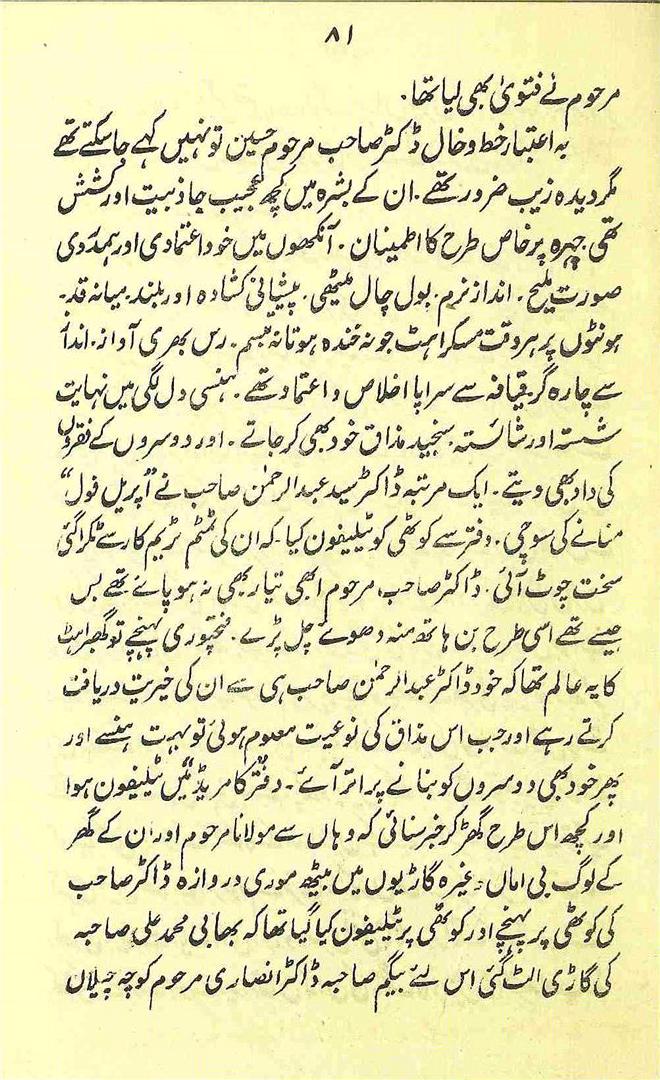 ۸۱
مرحوم نے فتویٰ بھی لیا تھا۔
بہ اعتبار خط و خال ڈاکٹر صاحب مرحوم حسین تو نہیں کہے جا سکتے تھے
مگر دیدہ زیب ضرور تھے۔ ان کے بشرہ میں کچھ عجیب جاذبیت اور کشش
تھی۔ چہرہ پر خاص طرح کا اطمینان۔ آنکھوں میں خود اعتمادی اور ہمدردی
صورت ملیح۔ انداز نرم۔ بول چال میٹھی۔ پیشانی کشادہ اور بلند۔ میانہ قد۔
ہونٹوں پر ہر وقت مسکراہٹ جو نہ خندہ ہوتا نہ تبسم۔ رس بھری آواز۔ انداز
سے چارہ گر۔ قیافہ سے سراپا اخلاص و اعتماد تھے۔ ہنسی دل لگی میں نہایت
شستہ اور شائستہ۔ سنجید مذاق خود بھی کر جاتے۔ اور دوسروں کے فقروں
کی داد بھی دیتے۔ ایک مرتبہ ڈاکٹر سید عبدالرحمٰن صاحب نے "اپریل فول"
منانے کی سوچی۔ دفتر سے کوٹھی کو ٹیلیفون کیا۔ کہ ان کی ٹمٹم ٹریم کار سے ٹکرا گئی
سخت چوٹ آئی۔ ڈاکٹر صاحب مرحوم ابھی تیار بھی نہ ہو پائے تھے بس
جیسے تھے اسی طرح بن ہاتھ منہ دھوئے چل پڑے۔ فتحپوری پہنچے تو گھبراہٹ
کا یہ عالم تھا کہ خود ڈاکٹر عبدالرحمٰن صاحب ہی سے ان کی خیریت دریافت
کرتے رہے اور جب اس مذاق کی نوعیت معلوم ہوئی تو بہت ہنسے اور
پھر خود بھی دوسروں کو بنانے پر اتر آئے۔ دفتر "کامریڈ" میں ٹیلیفون ہوا
اور کچھ اس طرح گھڑ کر خبر سنائی کہ وہاں سے مولانا مرحوم اور ان کے گھر
کے لوگ بی اماں وغیرہ گاڑیوں میں بیٹھ موری دروازہ ڈاکٹر صاحب
کی کوٹھی پر پہنچے ادر کوٹھی پر ٹیلیفون کیا گیا تھا کہ بھابی محمد علی صاحبہ
کی گاڑی الٹ گئی اس لئے بیگم صاحبہ ڈاکٹر انصاری مرحوم کوچہ چیلاں